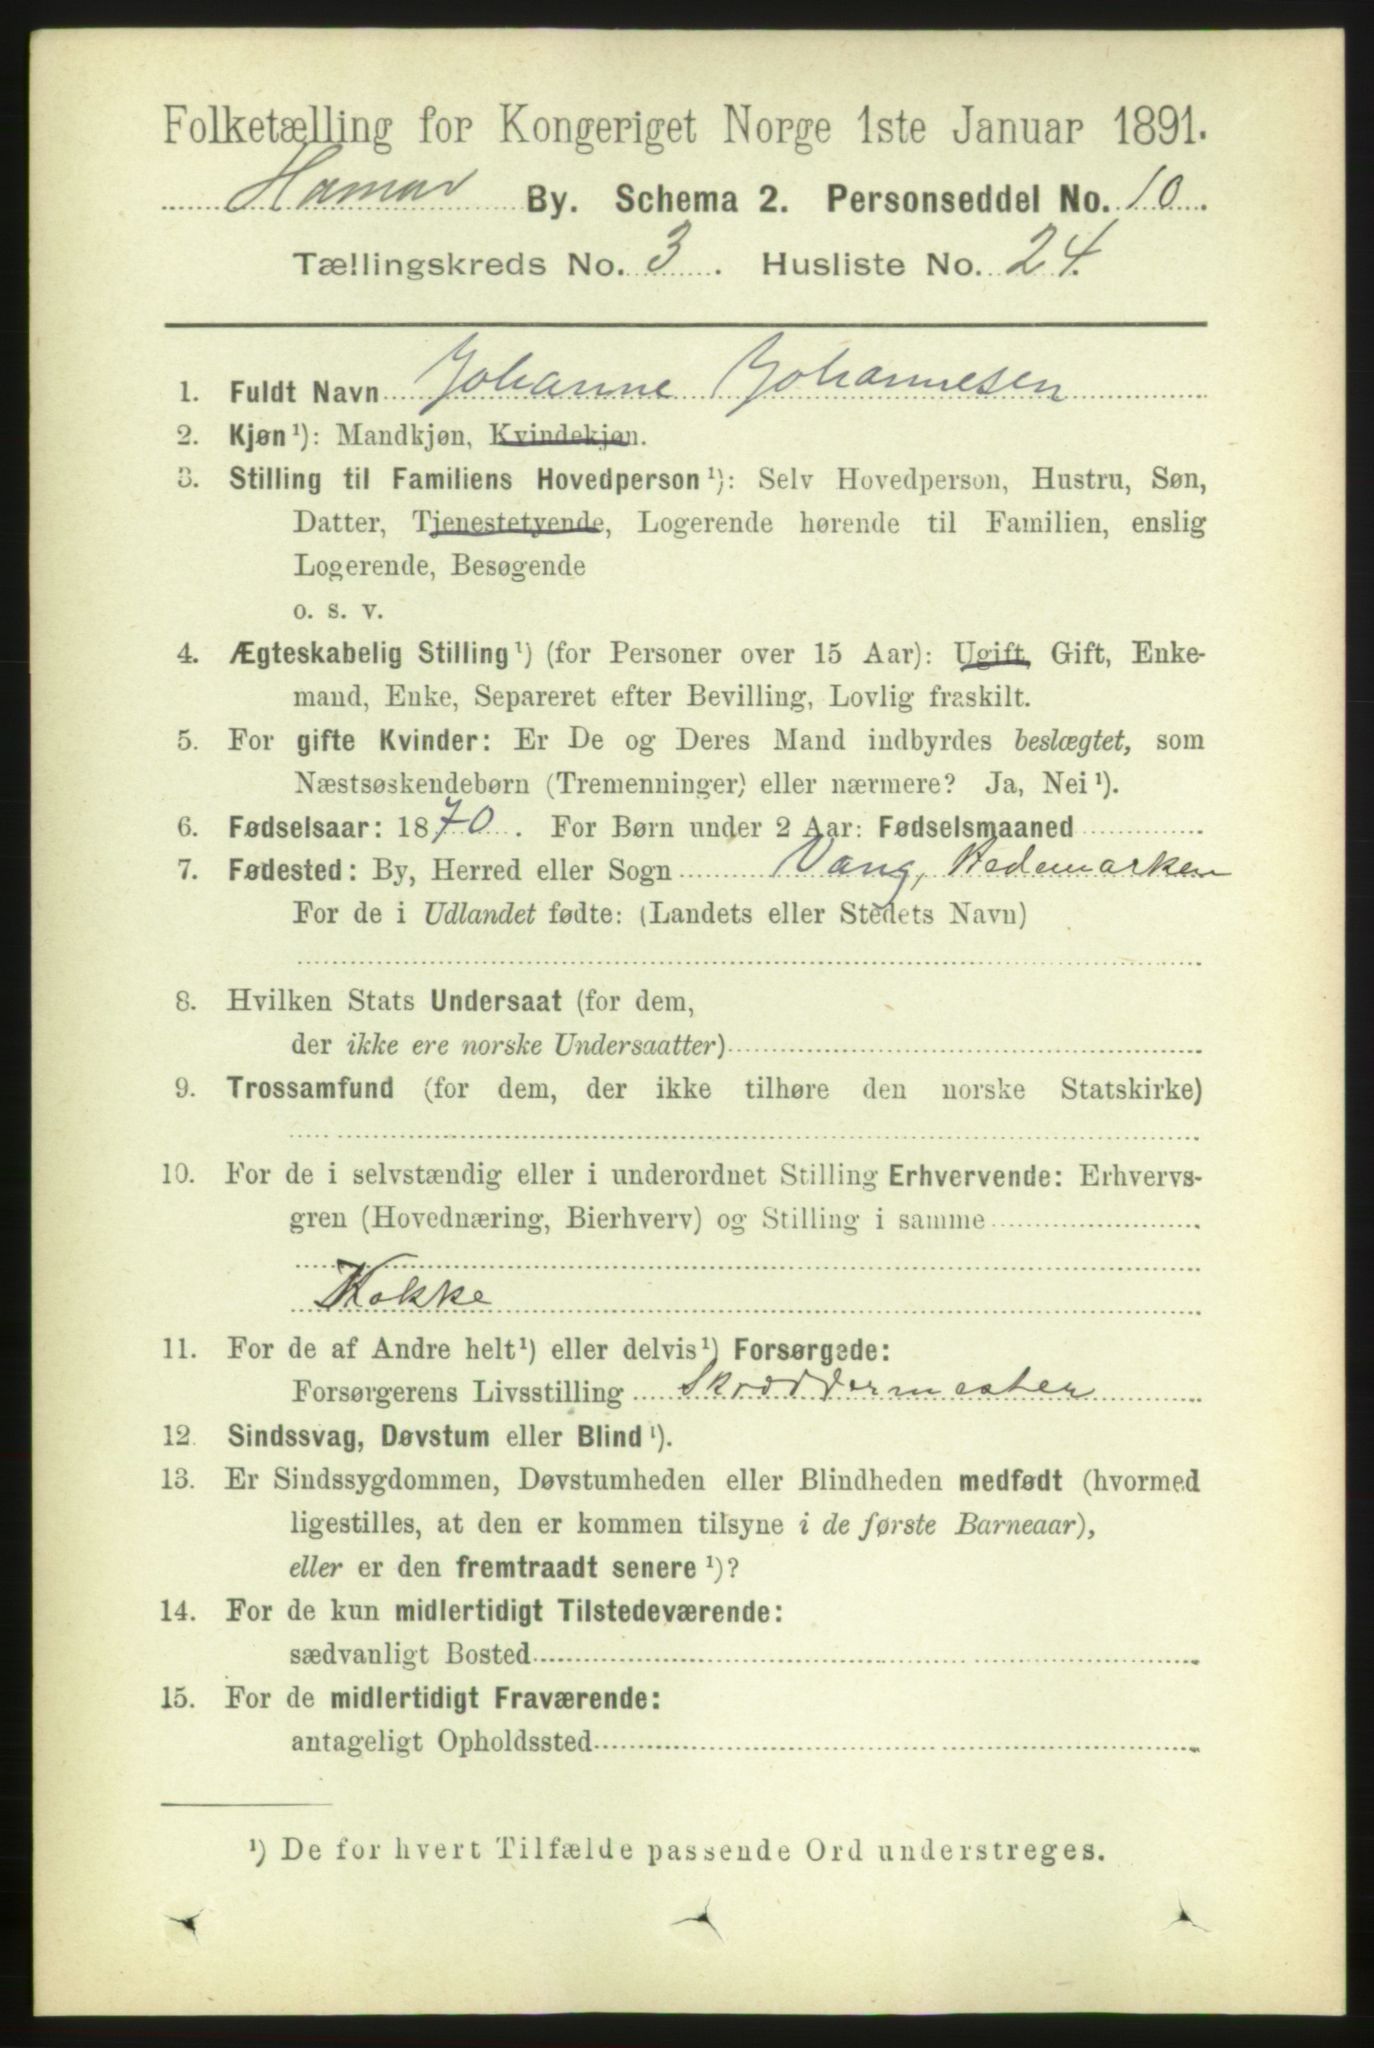 Folketælling for Kongeriget Norge 1ste Januar 1891.
Hamar By. Schema 2. Personseddel No. 10.
Tællingskreds No. 3. Husliste No. 24.
1. Fuldt Navn Johanne Johannesen
2. Kjøn¹): Mandkjøn, Kvindekjøn.
3. Stilling til Familiens Hovedperson¹): Selv Hovedperson, Hustru, Søn,
Datter, Tjenestetyende, Logerende hørende til Familien, enslig
Logerende, Besøgende
o. s. v.
4. Ægteskabelig Stilling¹) (for Personer over 15 Aar): Ugift, Gift, Enke-
mand, Enke, Separeret efter Bevilling, Lovlig fraskilt.
5. For gifte Kvinder: Er De og Deres Mand indbyrdes beslægtet, som
Næstsøskendebørn (Tremenninger) eller nærmere? Ja, Nei¹).
6. Fødselsaar: 1870. For Børn under 2 Aar: Fødselsmaaned
7. Fødested: By, Herred eller Sogn Vang, Hedemarken
For de i Udlandet fødte: (Landets eller Stedets Navn)
8. Hvilken Stats Undersaat (for dem,
der ikke ere norske Undersaatter)
9. Trossamfund (for dem, der ikke tilhøre den norske Statskirke)
10. For de i selvstændig eller i underordnet Stilling Erhvervende: Erhvervs-
gren (Hovednæring, Bierhverv) og Stilling i samme
Kokke
11. For de af Andre helt¹) eller delvis¹) Forsørgede:
Forsørgerens Livsstilling Skræddermester
12. Sindssvag, Døvstum eller Blind¹).
13. Er Sindssygdommen, Døvstumheden eller Blindheden medfødt (hvormed
ligestilles, at den er kommen tilsyne i de første Barneaar),
eller er den fremtraadt senere¹)?
14. For de kun midlertidigt Tilstedeværende:
sædvanligt Bosted
15. For de midlertidigt Fraværende:
antageligt Opholdssted
¹) De for hvert Tilfælde passende Ord understreges.